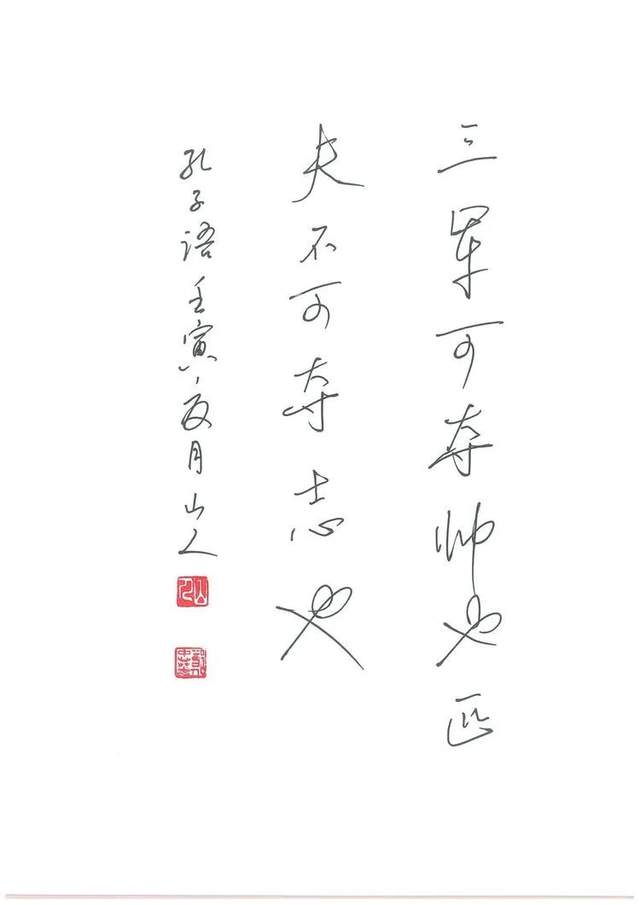 三军可夺帅也匹
夫不可夺志也
孔子语壬寅夏月山人
山人